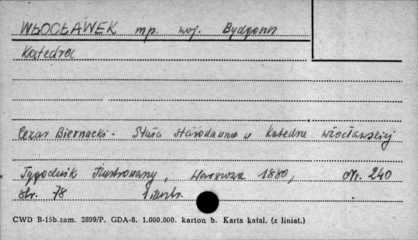 WŁOCŁAWEK mp. woj. Bydgoszcz
Katedra
Cezar Biernacki - Stara starodawna w katedrze włocławskiej
Tygodnik Ilustrowany, Warszawa 1880, Nr. 240
str. 78 1 ilustr.
CWD B-15b.zam. 2899/P. GDA-8. 1.000.000. karton b. Karta katal. (z liniat.)